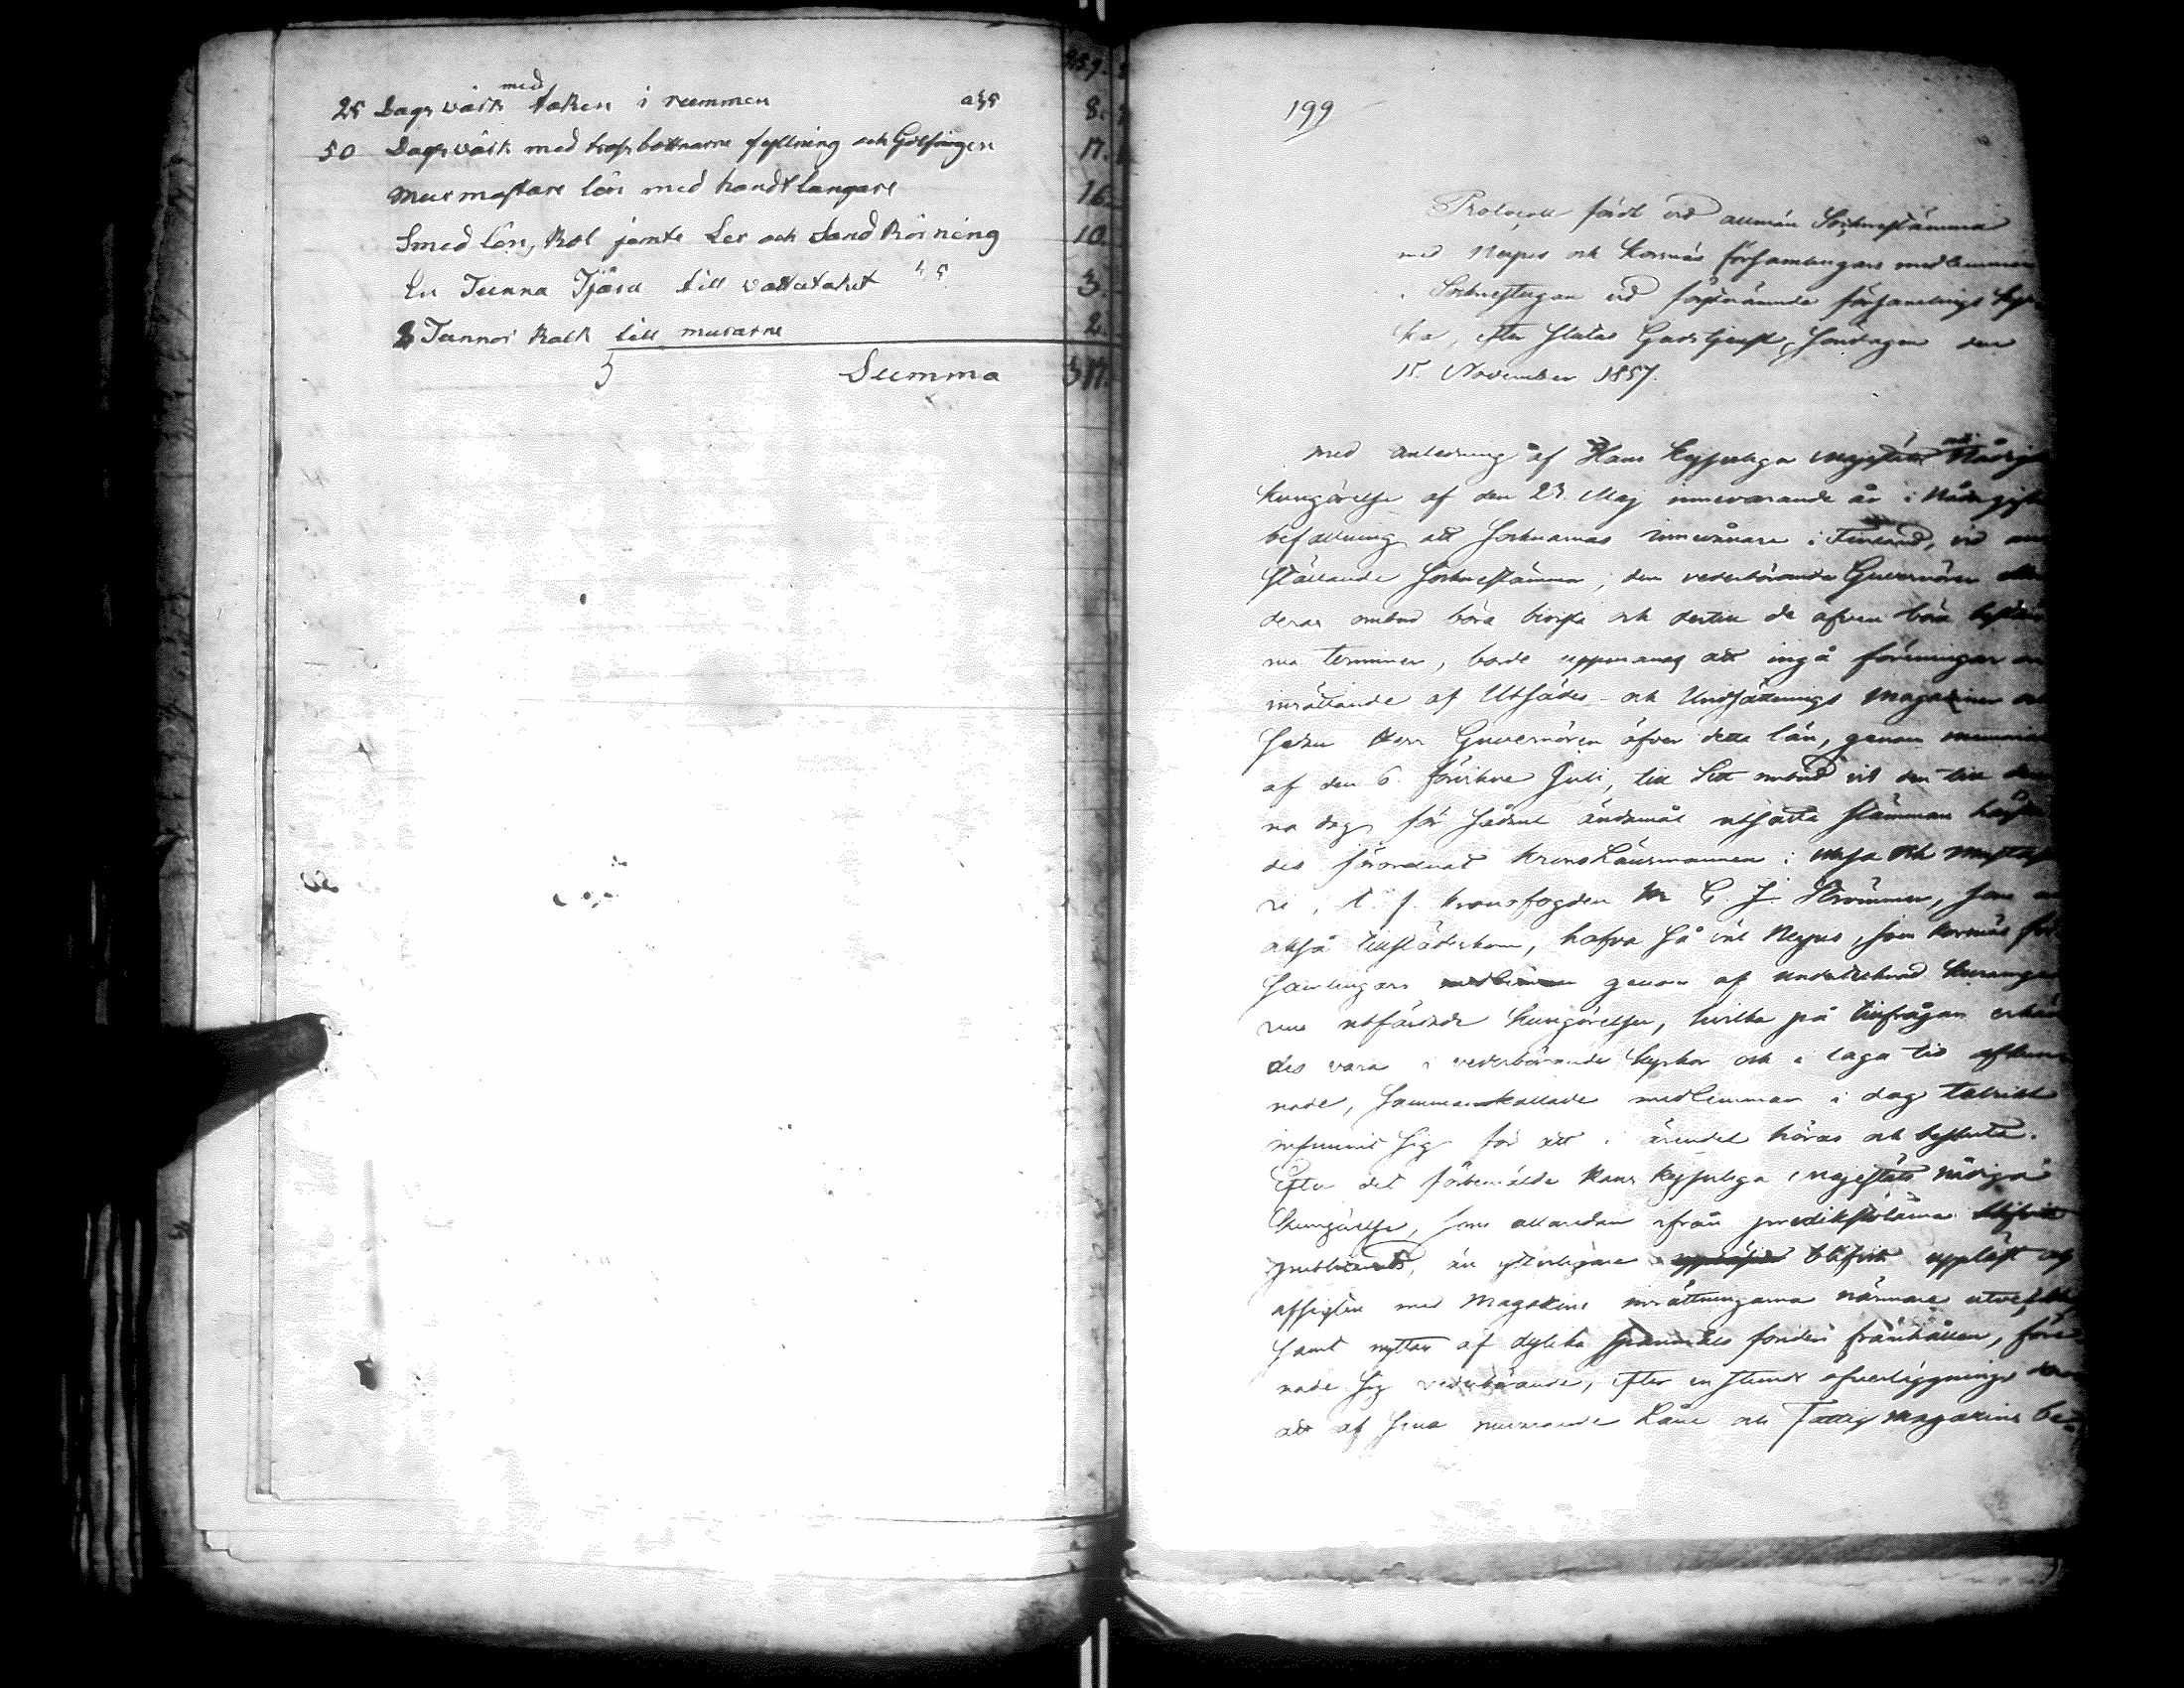 25 Dagsvärk med taken i rummen a 35 8.
50 Dagsvärk med trossbottnarne fyllning och Golfningen 17.
Murmästare lön med handtlangare 16
Smed lön, Kol jemte Ler och Sand körning 10
En Tunna Tjära till vattutaket 3.
2 Tunnor kalk till murarne 2.
Summa 317.
199
Protocoll fördt vid allmän Socknestämma
med Nerpes och Korsnäs församlingars medlemmar
i Socknestugan vid förstnämnde församlings kyr-
ka, efter slutad Gudstjenst, Söndagen den
15. November 1857.
Med anledning af Hans Kejserliga Majestäts Nådiga
Kungörelse af den 23. Maj innevarande år i Nådigste
befallning att Socknarnas innevånare i Finland, vid an-
ställande Socknestämmor, dem vederbörande Guvernören eller
deras ombud böra bivista och dertill de äfven böra bestäm-
ma terminer, borde uppmanas att ingå föreningar om
inrättande af Utsädes- och Undsättnings Magaziner och
sedan Herr Guvernören öfver detta län, genom memorial
af den 6. förvikne Juli, till Sitt ombud vid den till den-
na dag för sådant ändamål utsatta stämman härstä-
des förordnat Kronolänsmannen i
t. f. kronofogden C. J. Strömmer, som
också tillstädeskom, hafva så väl Nerpes, som Korsnäs för-
samlingars genom af undertecknad
utfärdade kungörelser, hvilka på tillfrågan erkän-
des vara i vederbörande kyrkor och i laga tid afkun-
nade, sammankallade medlemmar i dag talrikt
infunnit sig för att i ärendet höras och besluta.
Efter det förbemälde Hans Kejserliga Majestäts nådiga
Kungörelse, som allaredan ifrån predikstolarna blifvit
publicerad, än ytterligare blifvit uppläst och
afsigten med Magazins inrättningarna närmare utvecklad
samt nyttan af dylika fonder framhållen, före-
nade sig vederbörande, efter en stunds öfverläggning, der-
att af sina nuvarande Låne och Fattig magaziner be-